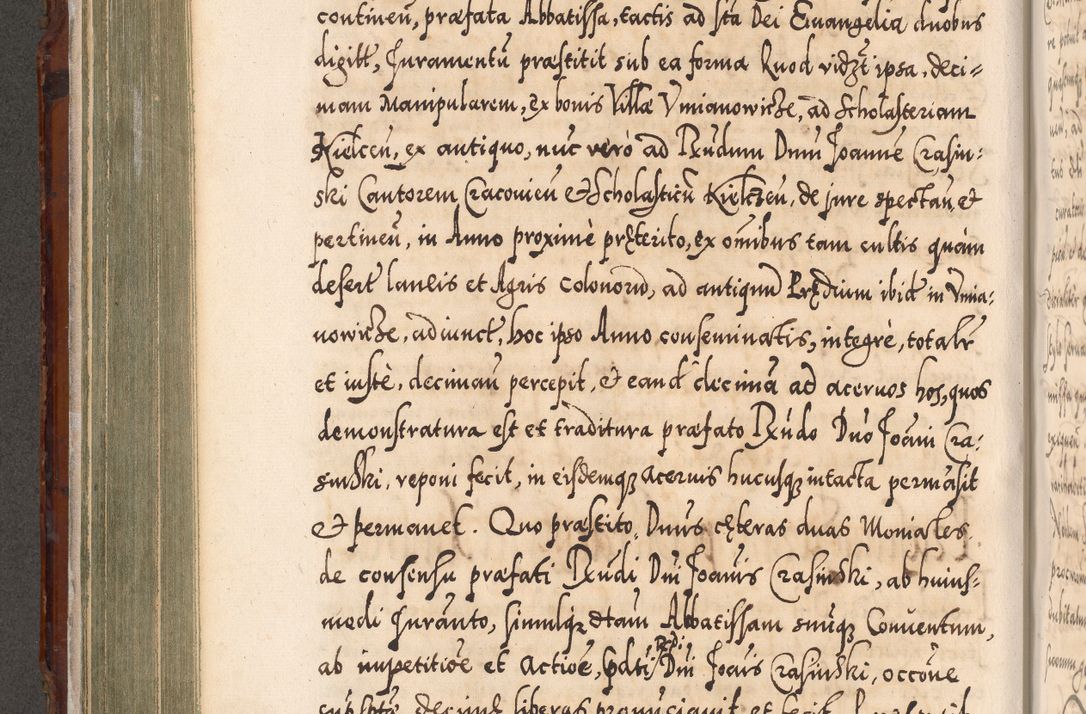 contineñ, præfata Abbatissa, tactis ad Sta Dei Euangelia duobus
digitt, Juramentũ præstitit sub ea forma Quod vidzt ipsa, deci=
mam Manipularem, ex bonis Villæ Vmianowicze, ad Scholasteriam
Kielceñ, ex antiquo, nũc verò ad Rñdum Dnum Joanne Crasin:
ski Cantorem Cracovieñ et Scholasticũ Kielczeñ, de jure spectañ, et
pertineñ, in Anno proximè pręterito, ex omibus tam cultis quàm
desert laneis et Agris colonorũ, ad antiquũ Prędium ibid in Vmia:
nowicze, adiunct, hoc ipso Anno conseminatis, integrè, totalr
et iustè, decimañ percepit, et eand decimã ad aceruos hos, quos
demonstratura est et traditura præfato Rñdo Dño Joãni Cra:
sinski, reponi fecit, in eisdemq aceruis hucusq intacta permãsit
et permanet. Quo præstito, Dnus cęteras duas Moniales
de consensu præfati Rñdi Dni Joanis Crasinski, ab huius=
modi Juranto, simulq dtam Abbatissam suũq Conuentum,
ab impetitioe et actioe, pdati Rdi Dni Joanis Crasinski, occoe